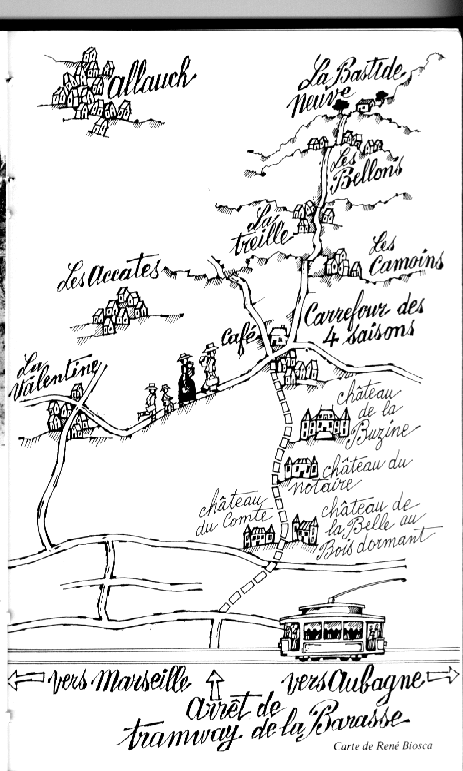 allauch
La Bastide
neuve
Les
Bellons
La
treille
Les
Camoins
Les Accates
Café
Carrefour des
4 saisons
La
Valentine
château
de la
Buzine
château du
notaire
château
du Comte
château de
la Belle au
Bois dormant
vers Marseille
vers Aubagne
arrêt de
tramway de la Barasse
Carte de René Biosca